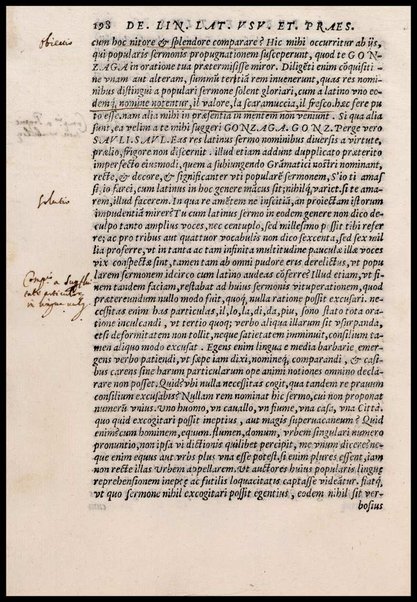 198 DE. LIN. LAT. VSV. ET. PRAES.
obiectio
cum hoc nitore & splendore comparare? Hic mihi occurritur ab ijs,
qui popularis sermonis propugnationem susceperunt, quod te GON-
ZAGA in oratione tua prætermisisse miror. Diligẽti enim cõquisiti-
ne vnam aut alteram, summũ tertiã rem inuenerunt, quas res nomi-
nibus distingui a populari sermone solent gloriari, cum a latino vno eo-
demq́; nomine notentur, il valore, la scaramuccia, il fresco. hæc sere pu
to esse. nam alia mihi in præsentia in mentem non veniunt. Si qua alia
sunt, ea velim a te mihi suggeri GONZAGA. GONZ. Perge vero
SAVLI. SAVL. Eas res latinus sermo nominibus diuersis a virtute,
prælio, frigore non discernit. illud etiam addunt dupplicato præterito
imperfecto eiusmodi, quem a subiungendo Grãmatici nostri nominant,
recte, & decore, & significanter vti popularẽ sermonem, S'io ti amas
si, io farei, cum latinus in hoc genere mãcus sit; nihilq́; variet. si te ama-
rem, illud facerem. In qua re amẽtem ne inscitiã, an proiectam istorum
solutio
impudentiã mirer? Tu cum latinus sermo in eodem genere non dico de-
cuplo tanto amplius voces, nec centuplo, sed millesmo possit tibi refer
re; ac pro tribus aut quattuor vocabulis non dico sexcenta, sed sex mil
lia proferre, vt in tanta ac tam infinita multitudine paucula illæ voces
vix conspectæ sint, tamen tam ab omni pudore eras derelictus, vt popu
larem sermonem idcirco cum latino audeas cõferre? Illud etiam, vt fi-
nem tandem faciam, restabat ad huius sermonis vituperationem, quod
prætereundum nullo modo fuit, quoq́; nulla ratione possit excusari. ne-
cessitas enim has particulas, il, lo, la, di, da, piu, sono stato tota orati-
one inculcandi, vt tertio quoq; verbo aliqua illarum sit vsurpanda,
etsi deformitatem non tollit, neque satietatem imminuit, consilium ta-
men aliquo modo excusat. Egens enim lingua e media barbarie emer-
gens verbo patiendi, vt sæpe iam dixi, nomineq́; comparandi, & casi-
bus carens sine harum particularum ope animi notiones omnino decla-
rare non posset. Quid? vbi nulla necessitas cogit, qua tandem re prauum
consilium excusabis? Nullam rem nominat hic sermo, cui non proponat
numerũ vnius. Vno huomo, vn cauallo, vn fiume, vna casa, vna Città.
quo quid excogitari possit ineptius, aut magis superuacaneum? Quid
enim? cum hominem, equum. flumen, domum, vrbem singulari numero
pronuntio, non ipsa vi dictionis quilibet percipit, me vnum dicere? ne-
que enim equus aut vrbs plus vna esse potest. si enim plures essent, iam
non recte illas Vrbem appellarem. Vt auctores huius popularis linguę
reprehensionem ineptæ ac futilis loquacitatis captasse videãtur. siatq́;
vt quo sermone nihil excogitari possit egentius, eodem nihil sit ver-
bosius